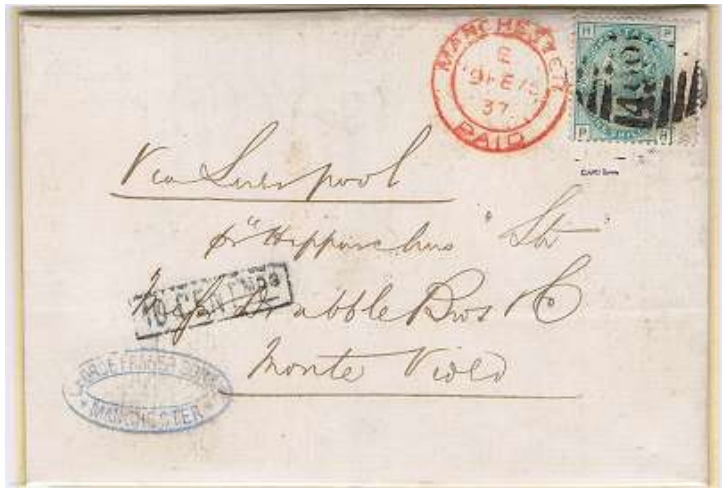 MANCHESTER
E
9 FE 75
37
PAID
H H
498
P H
Via Liverpool
pr "Hipparchus" Str
10 CENTMOS
Messrs Drabble Bros & Co
Monte Video
GEORGE FRASER SON & Co
MANCHESTER